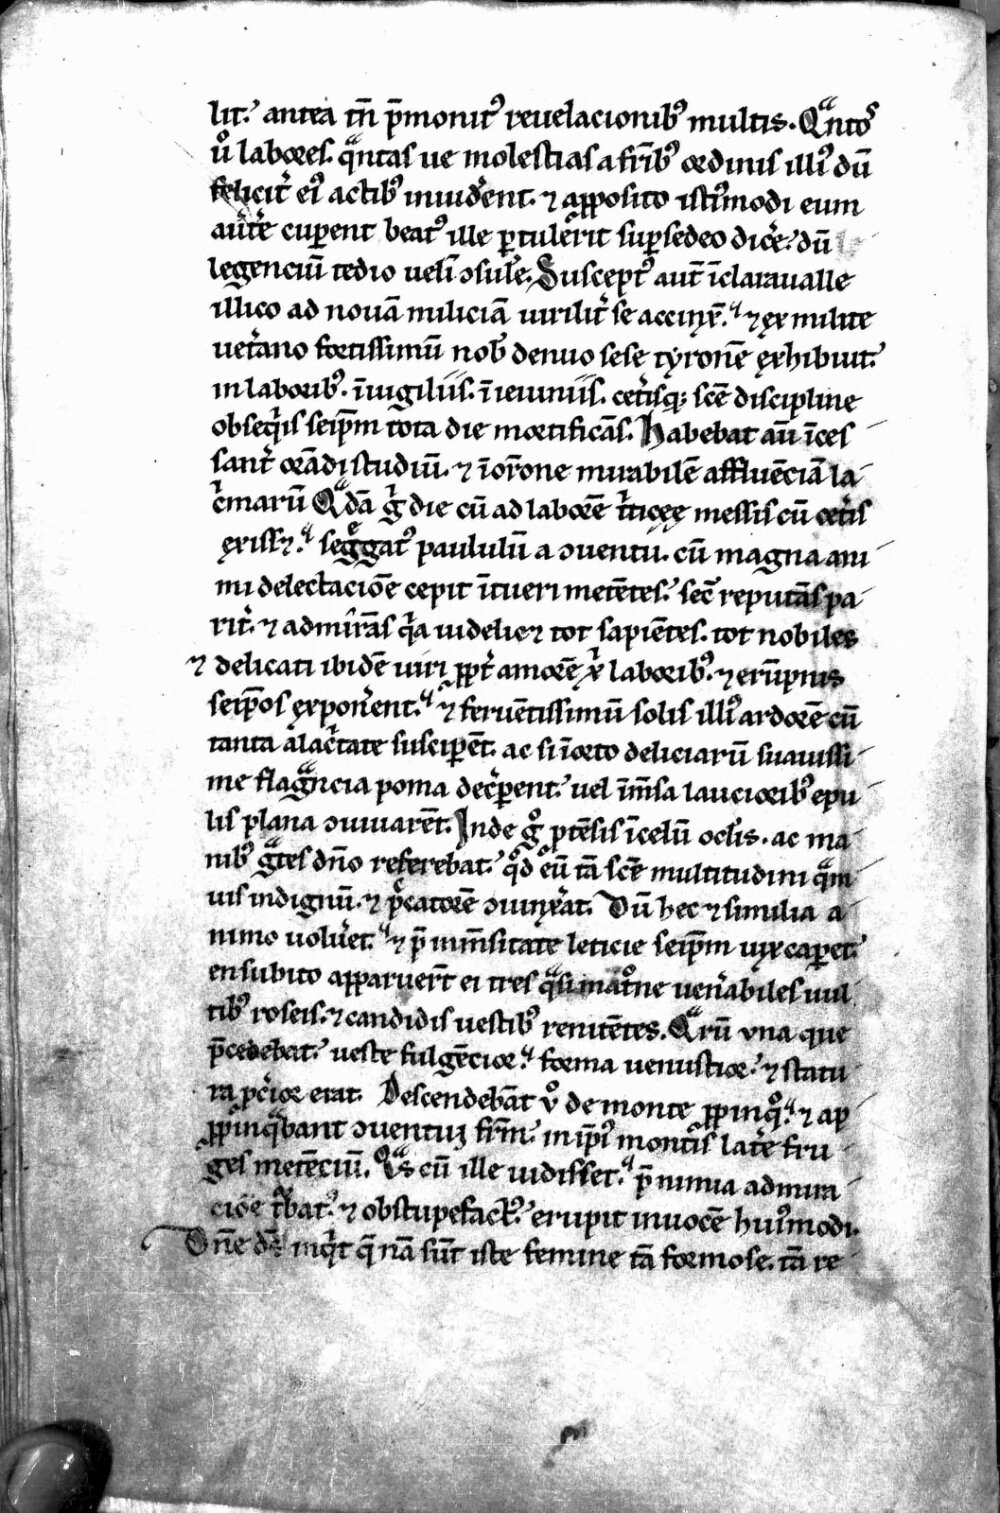 lit. antea tn̄ p̄monitꝰ reuelacionibꝰ multis. Qͣntoſ
u̾ labores. qͣntas ue molestias a fr̄ibꝰ ordinis illiꝰ dū
felicit̾ eiꝰ actibꝰ inuid̾ent. ⁊ apposito istiꝰmodi eum
au̾te̾ cup̄ent beatꝰ ille ꝑtul̾erit suꝑsedeo dice̾. dū
legenciū tedio uelī ↄsule̾. Susceptꝰ aut̄ ī claraualle
illico ad nouā miliciā uirilit̾ se accinx̄. ⁊ ex milite
uet̾ano fortissimū nob̾ denuo sese tyronē exhibuit.
in laboribꝰ. īuigiliis. ī ieiuniis. cet̾isqꝫ sc̄e discipline
obseqͥis seip̄m tota die mortificās. Habebat aū īces
sant̾ orādi studiū. ⁊ ī or̄one mirabilē affluēciā la
cͥmarū Qͣdā gͥ die cū ad laborē tͥticee messis cū cet̾is
exissꝫ. seg̾gatꝰ paululū a ↄuentu. cū magna ani
mi delectacioē cepit ītueri metētes. sec̄ reputās pa
rit̾. ⁊ admirās qͥa uidelicꝫ tot sapiētes. tot nobiles
⁊ delicati ibidē uiri ꝓpt̾ amorē xͥ laboribꝰ. ⁊ erūpnis
seip̄os expon̾ent. ⁊ feruētissimū solis illiꝰ ardorē cū
tanta alac̾tate suscip̄ent. ac si ī orto deliciarū suauissi
me flagͣncia poma dec̾ꝑent. uel īm̄sa laucioribꝰ epu
lis plana ↄuiuarēt. Inde gͦ ꝓtēsis ī celū oclis. ac ma
nibꝰ gͣtes dn̄o referebat. qͦd eū tā sc̄e multitudini qͣm
uis indignū. ⁊ p̄catorē ↄiunx̾at. Dū hec ⁊ similia a
nimo uolu̾et. ⁊ p̄ inm̄sitate leticie seip̄m uix caꝑet.
en subito apparuer̄t ei tres qͣsi matͦne uen̾abiles uul
tibꝰ roseis. ⁊ candidis uestibꝰ renitētes. Qͣrū vna que
p̄cedebat. ueste fulgēcior. forma uenustior. ⁊ statu
ra ꝓc̾ior erat. Descendebāt vͦ de monte ꝓpinqͦ. ⁊ ap
ꝓpinqͣbant ↄuentuꝫ fr̄m. in ip̄iꝰ montis late̾ fru
ges metēciū. Qͣs cū ille uidisset. p̄ nimia admira
cioē tͥbatꝰ. ⁊ obstupefactꝰ. erupit in uocē huiꝰmodi.
Dn̄e ds̄ inqͥt q̄ nā sūt iste femine tā formose. tā re